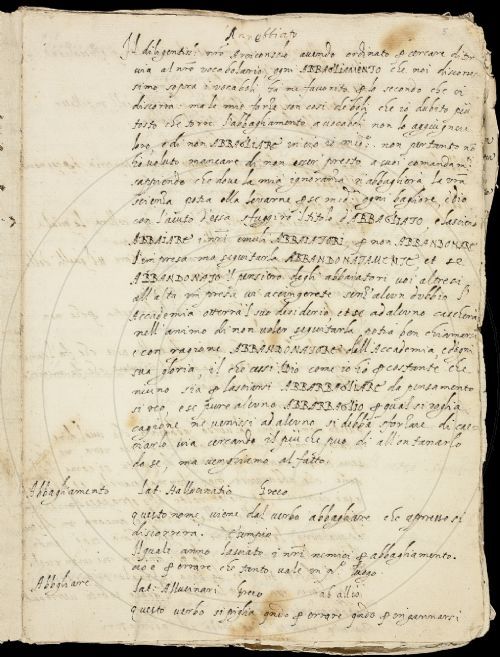 Ranobbiato
Il diligentiss. nro Arciconsolo avendo ordinato per cercare di tor
via al nro vocabolario ogni ABBAGLIAMENTO che noi discorres-
simo sopra i vocaboli fa me favorito per lo secondo che vi
discorra ma le mie forze son così deboli che io dubito più
tosto che torre l'abbagliamento a vocaboli non lo
loro e di non ABBAGLIARE non pertanto nō
ho voluto mancare di non esser presto a suoi comandam.ti
sappiendo che dove la mia ignoranza n'abbaglierà la vra
scienzia potrà ella levarne ogni bagliore, e io
con l'aiuto d'essa sfuggirò l titolo d'ABBAGLIATO, e lascierò
ABBAIARE i nri emuli ABBAIATORI, e non ABBANDONARE
l'impresa ma seguitarla ABBANDONATAMENTE et se
ABBANDONATO il pensiero degli abbaiatori voi altresì
all'alta impresa vi accingerete senz'alcun dubbio l'
Accademia otterrà l suo desiderio, et se ad alcuno cascherà
nell'animo di non voler seguitarla potrà ben chiamarsi
e con ragione ABBANDONATORE dell'Accademia e d'ogni
sua gloria, il che cessi Dio come io ho per costante che
niuno sia per lasciarsi ABBARBAGLIARE da pensamento
sì reo, e se pure alcuno ABBARBAGLIO per qual si voglia
cagione ne venissi ad alcuno si debba sforzare di cac-
ciarlo via cercando il più che può di allontanarlo
da se, ma venghiamo al fatto.
Abbagliamento Lat. Hallucinatio Greco
questo nome viene dal verbo abbagliare che appresso si
discorrerà. Esempio
Il quale anno lasciato i nri nemici per abbagliamento.
cio è per errore che tanto vale in q.o luogo.
Abbagliare Lat. Allucinari Greco ab allio
questo verbo si piglia per errare per ingannarsi